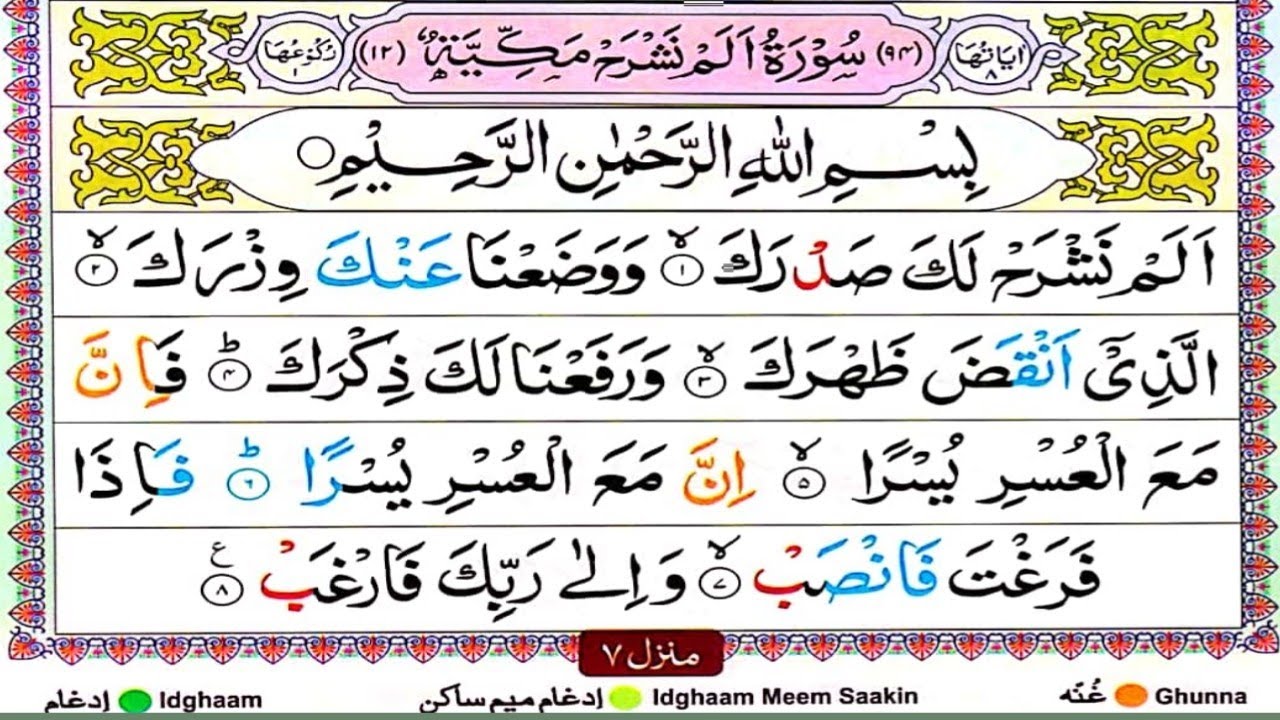 اٰیَاتُهَا ٨ (٩٤) سُوْرَةُ اَلَمْ نَشْرَحْ مَكِّيَّةٌ (١٢) رُكُوْعُهَا ١
بِسْمِ اللهِ الرَّحْمٰنِ الرَّحِيْمِ
اَلَمْ نَشْرَحْ لَكَ صَدْرَكَ ۙ﴿١﴾ وَوَضَعْنَا عَنْكَ وِزْرَكَ ۙ﴿٢﴾
الَّذِیْۤ اَنْقَضَ ظَهْرَكَ ۙ﴿٣﴾ وَرَفَعْنَا لَكَ ذِكْرَكَ ؕ﴿٤﴾ فَاِنَّ
مَعَ الْعُسْرِ يُسْرًا ۙ﴿٥﴾ اِنَّ مَعَ الْعُسْرِ يُسْرًا ؕ﴿٦﴾ فَاِذَا
فَرَغْتَ فَانْصَبْ ۙ﴿٧﴾ وَاِلٰى رَبِّكَ فَارْغَبْ ﴿٨﴾ ع
منزل ٧
إدغام Idghaam إدغام ميم ساكن Idghaam Meem Saakin غُنّه Ghunna